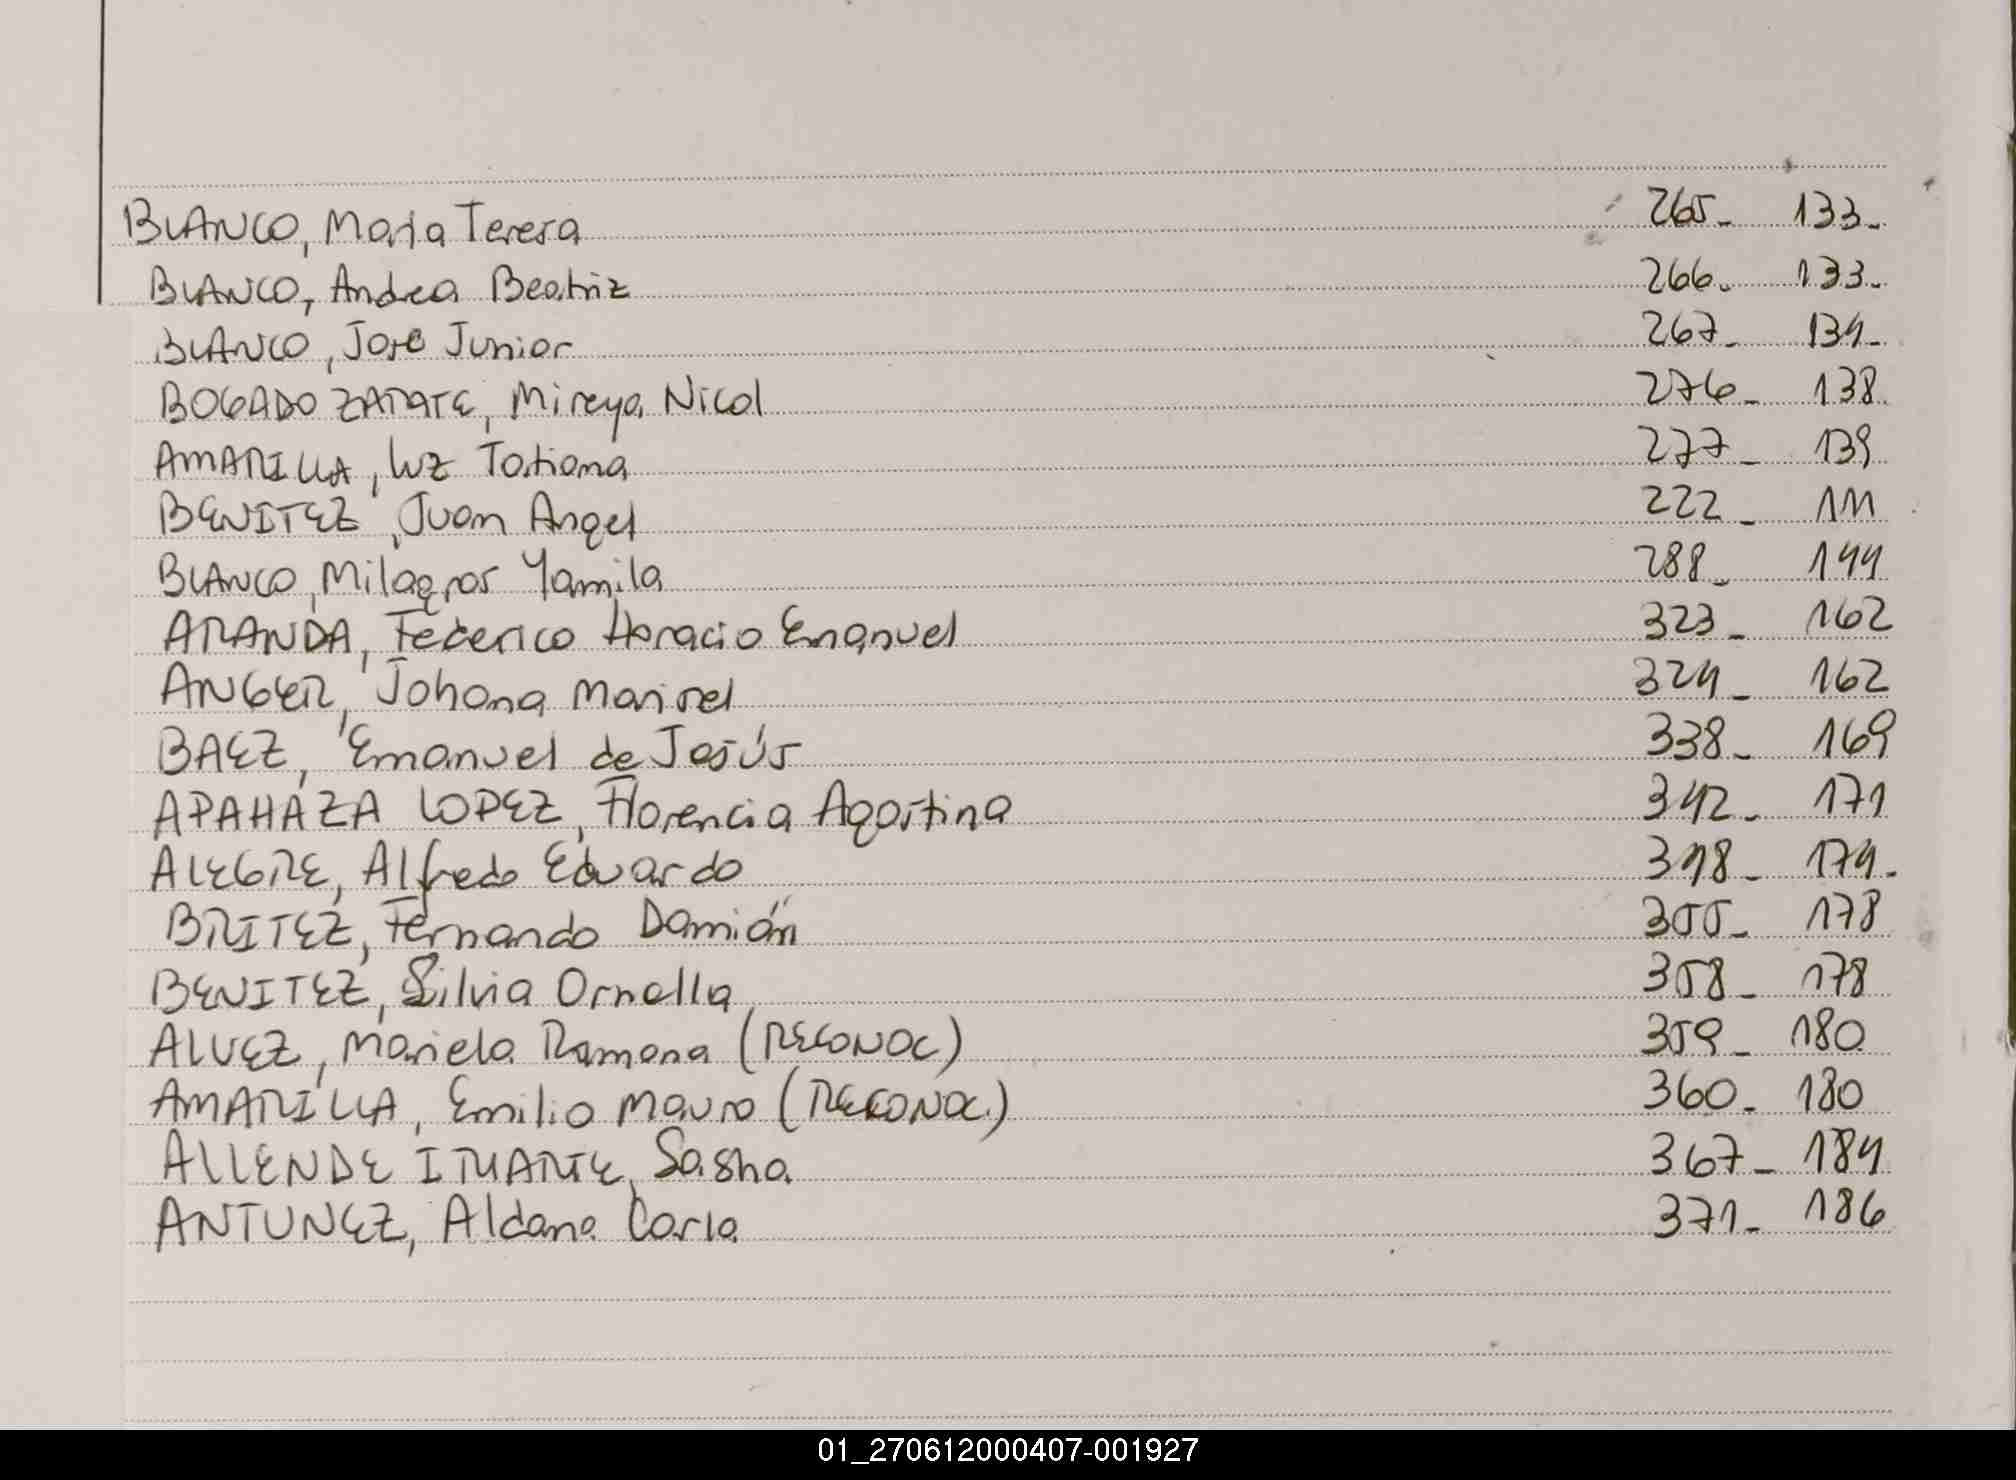 BLANCO, María Teresa 265- 133-
BLANCO, Andrea Beatriz 266- 133-
BLANCO, José Junior 267- 134-
BOGADO ZARATE, Mireya Nicol 276- 138
AMARILLA, Luz Tatiana 277- 139
BENITEZ, Juan Angel 222- 111
BLANCO, Milagros Yamila 288- 144
ARANDA, Federico Horacio Emanuel 323- 162
ANGER, Johana Marisel 324- 162
BAEZ, Emanuel de Jesús 338- 169
APAHAZA LOPEZ, Florencia Agostina 342- 171
ALEGRE, Alfredo Eduardo 348- 174-
BRITEZ, Fernando Damián 355- 178
BENITEZ, Silvia Ornella 358- 178
ALVEZ, Mariela Ramona (RECONOC) 359- 180
AMARILLA, Emilio Mauro (RECONOC.) 360- 180
ALLENDE IRIARTE, Sasha 367- 184
ANTUNEZ, Aldana Carla 371- 186
01_270612000407-001927